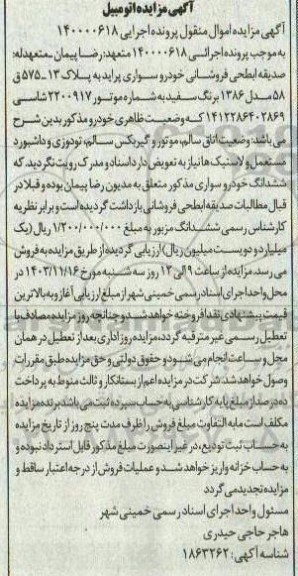 آگهی مزایده اتومبیل
آگهی مزایده اموال منقول پرونده اجرایی ۱۴۰۰۰۰۶۱۸
به موجب پرونده اجرائی ۱۴۰۰۰۰۶۱۸ متعهد: رضا پیمان _متعهدله:
صدیقه ابطحی فروشانی خودرو سواری پراید به پلاک ۱۳_۵۷۵ ق
۵۸ مدل ۱۳۸۶ برنگ سفید به شماره موتور ۲۲۰۰۹۱۷ شاسی
۱۴۱۲۲۸۶۴۰۲۸۶۹ که وضعیت ظاهری خودرو مذکور بدین شرح
می باشد: وضعیت اتاق سالم، موتور و گیربکس سالم، تودوزی و داشبورد
مستعمل و لاستیک ها نیاز به تعویض دارد اسناد و مدرک رویت نگردید. که
ششدانگ خودرو سواری مذکور متعلق به مدیون رضا پیمان بوده و قبلا در
قبال مطالبات صدیقه ابطحی فروشانی بازداشت گردیده است و برابر نظریه
کارشناس رسمی ششدانگ مزبور به مبلغ ۱/۲۰۰/۰۰۰/۰۰۰ ریال (یک
میلیارد و دویست میلیون ریال) ارزیابی گردیده از طریق مزایده به فروش
می رسد. مزایده از ساعت ۹ الی ۱۲ روز سه شنبه مورخ ۱۴۰۳/۱۱/۱۶ در
محل واحد اجرای اسناد رسمی خمینی شهر از مبلغ ارزیابی آغاز و به بالاترین
قیمت پیشنهادی نقدا فروخته خواهد شد و چنانچه روز مزایده مصادف با
تعطیل رسمی غیر مترقبه گردد، مزایده روز اداری بعد از تعطیل در همان
محل و ساعت انجام می شود و حقوق دولتی و حق مزایده طبق مقررات
وصول خواهد شد: شرکت در مزایده اعم از بستانکار و ثالث منوط به پرداخت
ده درصد از مبلغ پایه کارشناسی به حساب سپرده ثبت می باشد برنده مزایده
مکلف است مابه التفاوت مبلغ فروش را ظرف مدت پنج روز از تاریخ مزایده
به حساب ثبت تودیع، در غیر اینصورت مبلغ مذکور قابل استرداد نبوده و
به حساب خزانه واریز خواهد شد و عملیات فروش از درجه اعتبار ساقط و
مزایده تجدید می گردد
مسئول واحد اجرای اسناد رسمی خمینی شهر
هاجر حاجی حیدری
شناسه آگهی: ۱۸۶۳۲۶۲